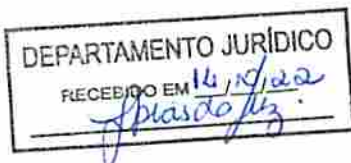 DEPARTAMENTO JURÍDICO
RECEBIDO EM 14/10/22